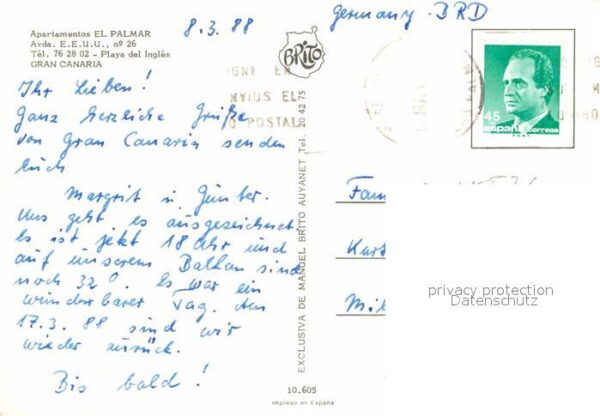 Apartamentos EL PALMAR
Avda. E.E.U.U., nº 26
Tél. 76 28 02 - Playa del Inglés
GRAN CANARIA
8.3.88
Ihr Lieben!
Ganz herzliche Grüße
von Gran Canaria senden
Euch
Margrit u. Günter.
Uns geht es ausgezeichnet.
Es ist jetzt 18 Uhr und
auf unserem Balkon sind
noch 32°. Es war ein
wunderbarer Tag. Am
17.3.88 sind wir
wieder zurück.
Bis bald!
BRITO
EXCLUSIVA DE MANUEL BRITO AUYANET Tel. 20 42 75
10.605
Impreso en España
Germany - BRD
ONE EN
EL
POSTAL
45
españa correos
Fam
Kurt
Mil
privacy protection
Datenschutz